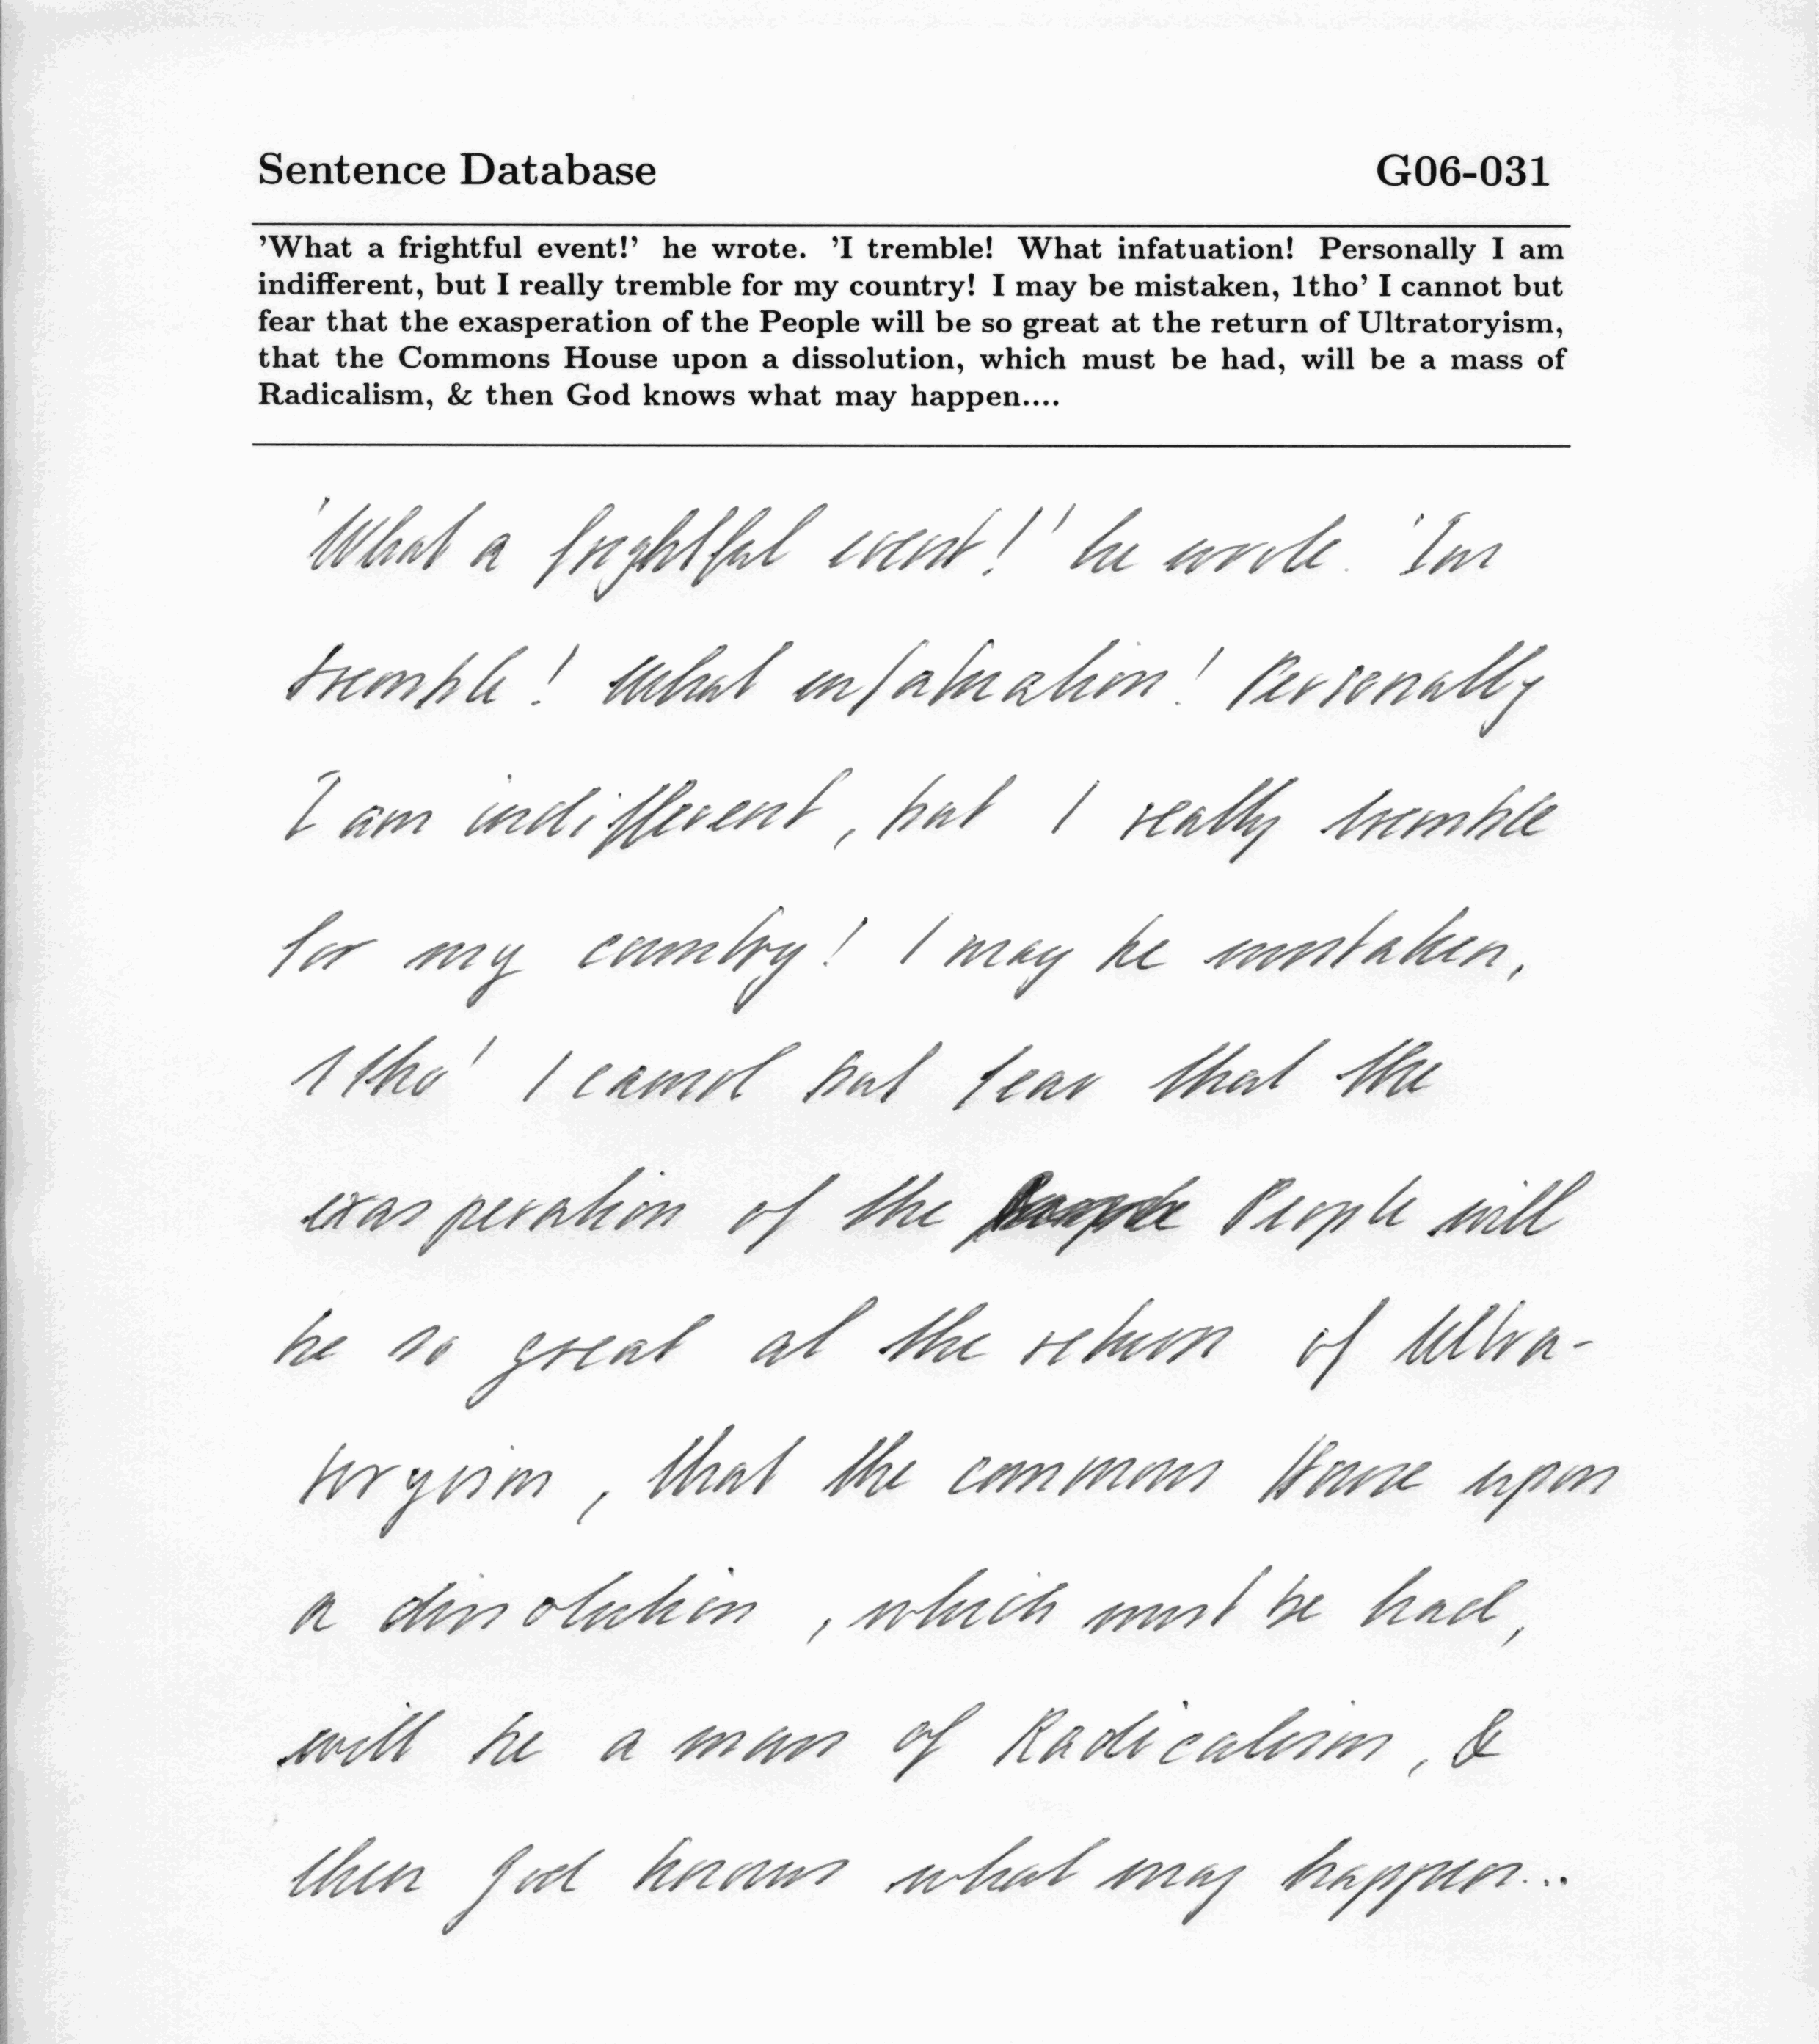 Sentence Database G06-031
’What a frightful event!’ he wrote. ’I tremble! What infatuation! Personally I am
indifferent, but I really tremble for my country! I may be mistaken, 1tho’ I cannot but
fear that the exasperation of the People will be so great at the return of Ultratoryism,
that the Commons House upon a dissolution, which must be had, will be a mass of
Radicalism, & then God knows what may happen....
'What a frightful event!' he wrote. 'Im
tremble! What infatuation! Personally
I am indifferent, but I really tremble
for my country! I may be mistaken,
1tho' I cannot but fear that the
exasperation of the People will
be so great at the return of Ultra-
toryism, that the commons House upon
a dissolution, which must be had,
will be a mass of Radicalism, &
then God knows what may happen...